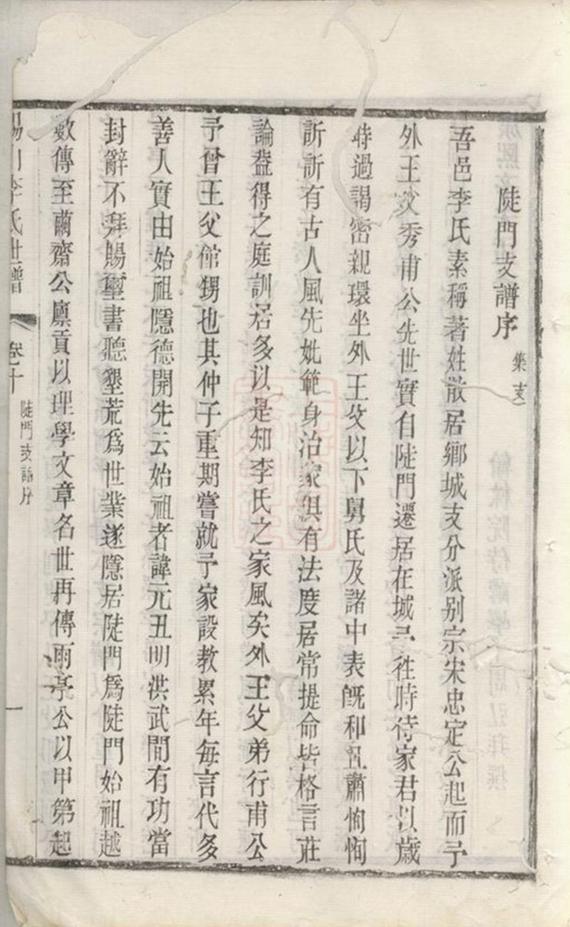 陡門支譜序 集支
吾邑李氏素稱著姓散居鄉城支分派别宗宋忠定公起而予
外王父秀甫公先世實自陡門遷居在城予徃時待家君以歲
時過謁密親環坐外王父以下舅氏及諸中表旣和且肅恂恂
訢訢有古人風先妣範身治家俱有法度居常提命皆格言莊
論葢得之庭訓居多以是知李氏之家風矣外王父弟行甫公
予曾王父館甥也其仲子重期嘗就予家設教累年每言代多
善人實由始祖隱德開先云始祖者諱元丑明洪武間有功當
封辭不拜賜璽書聽墾荒爲世業遂隱居陡門爲陡門始祖越
數傳至繭齋公廪貢以理學文章名世再傳雨亭公以甲第起
李氏世譜 卷十 陡門支譜序 一